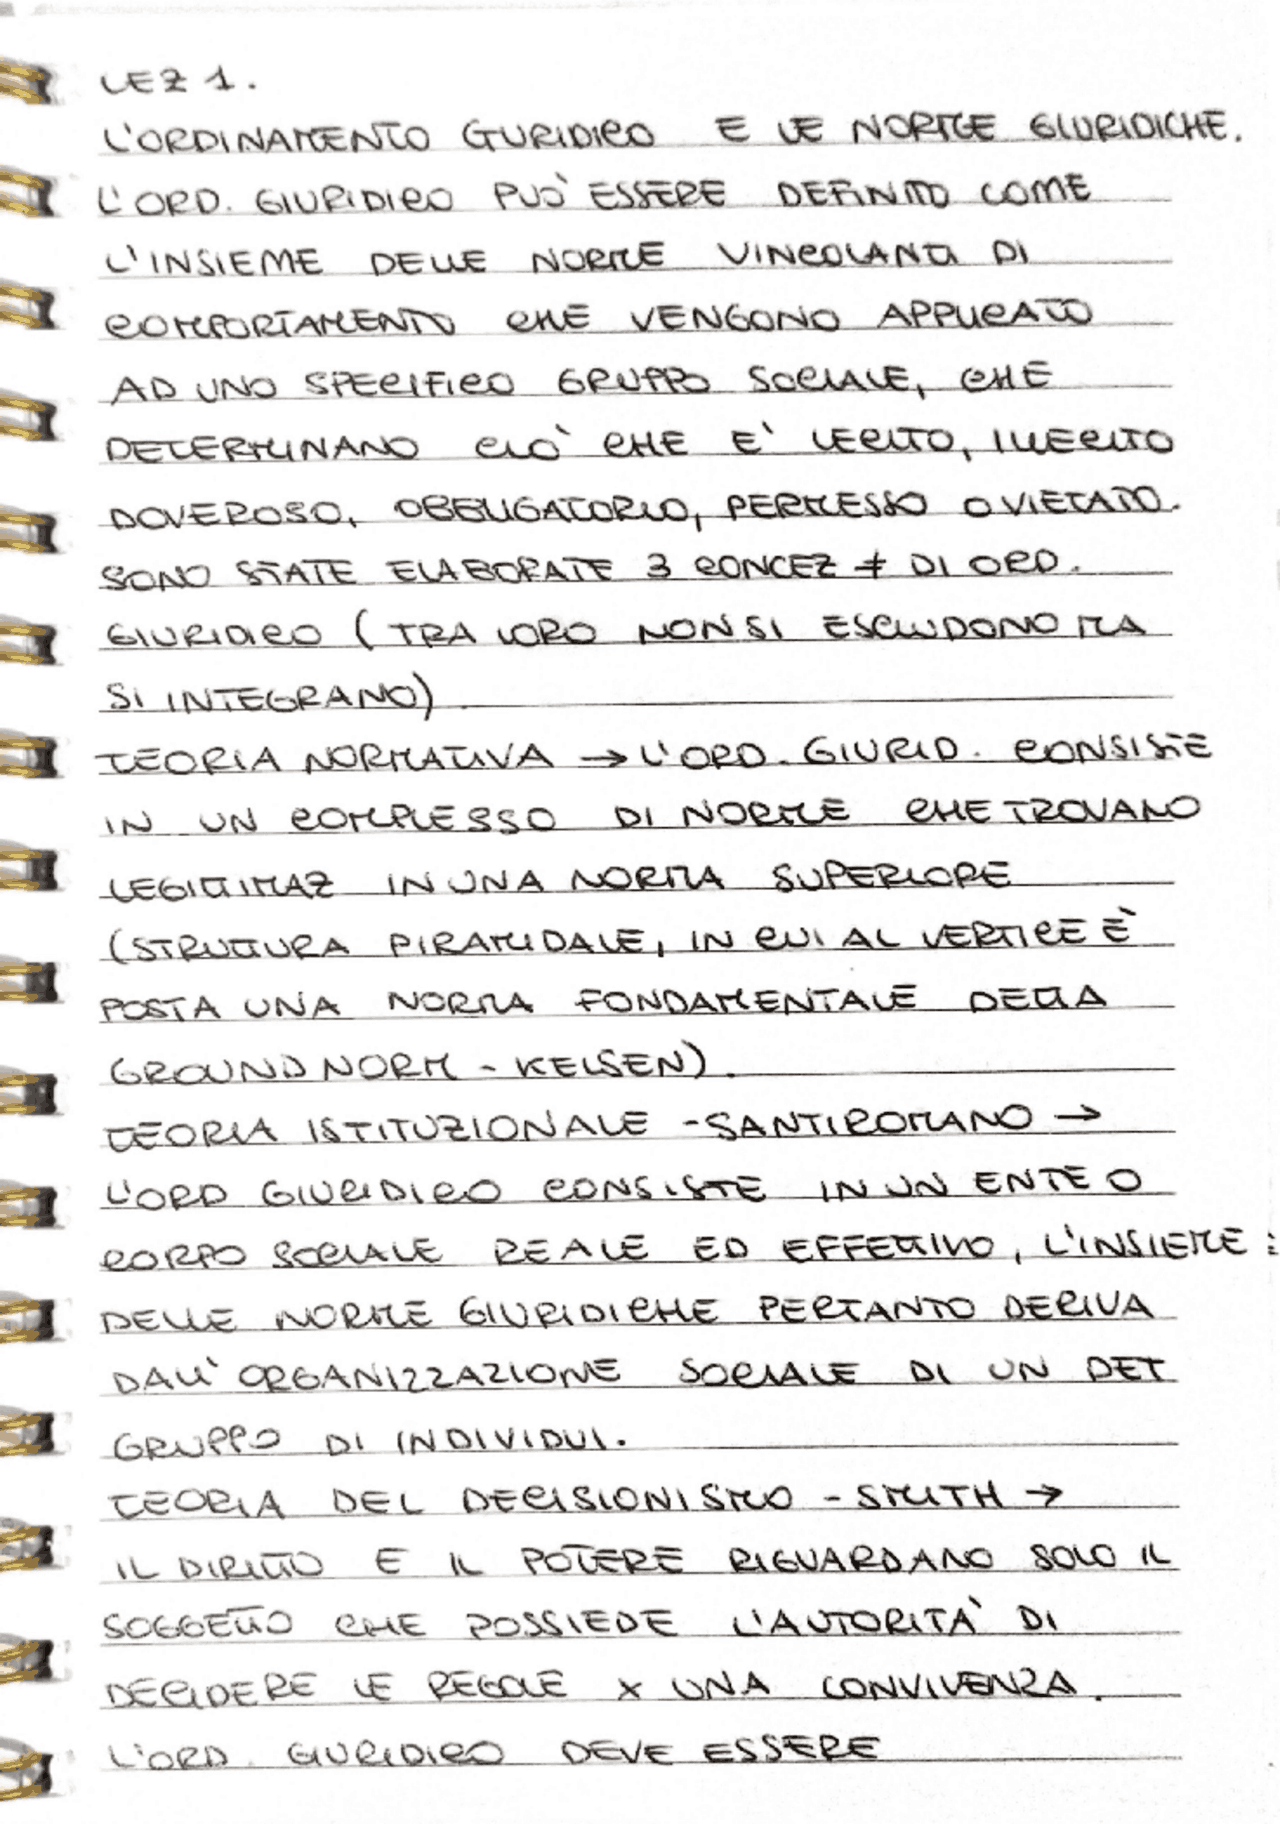 LEZ 1.
L'ORDINAMENTO GURIDICO E LE NORME GIURIDICHE.
L'ORD. GIURIDICO PUÒ ESSERE DEFINITO COME
L'INSIEME DELLE NORME VINCOLANTI DI
COMPORTAMENTO CHE VENGONO APPLICATO
AD UNO SPECIFICO GRUPPO SOCIALE, CHE
DETERMINANO CIÒ CHE E' LECITO, ILLECITO
DOVEROSO, OBBLIGATORIO, PERMESSO O VIETATO.
SONO STATE ELABORATE 3 CONCEZ ≠ DI ORD.
GIURIDICO (TRA LORO NON SI ESCLUDONO MA
SI INTEGRANO)
TEORIA NORMATIVA → L'ORD. GIURID. CONSISTE
IN UN COMPLESSO DI NORME CHE TROVANO
LEGITTIMAZ IN UNA NORMA SUPERIORE
(STRUTTURA PIRAMIDALE, IN CUI AL VERTICE È
POSTA UNA NORMA FONDAMENTALE DETTA
GROUNDNORM - KELSEN).
TEORIA ISTITUZIONALE - SANTIROMANO →
L'ORD GIURIDICO CONSISTE IN UN ENTE O
CORPO SOCIALE REALE ED EFFETTIVO, L'INSIEME
DELLE NORME GIURIDICHE PERTANTO DERIVA
DALL'ORGANIZZAZIONE SOCIALE DI UN DET
GRUPPO DI INDIVIDUI.
TEORIA DEL DECISIONISMO - SMITH →
IL DIRITTO E IL POTERE RIGUARDANO SOLO IL
SOGGETTO CHE POSSIEDE L'AUTORITÀ DI
DECIDERE LE REGOLE X UNA CONVIVENZA.
L'ORD. GIURIDICO DEVE ESSERE